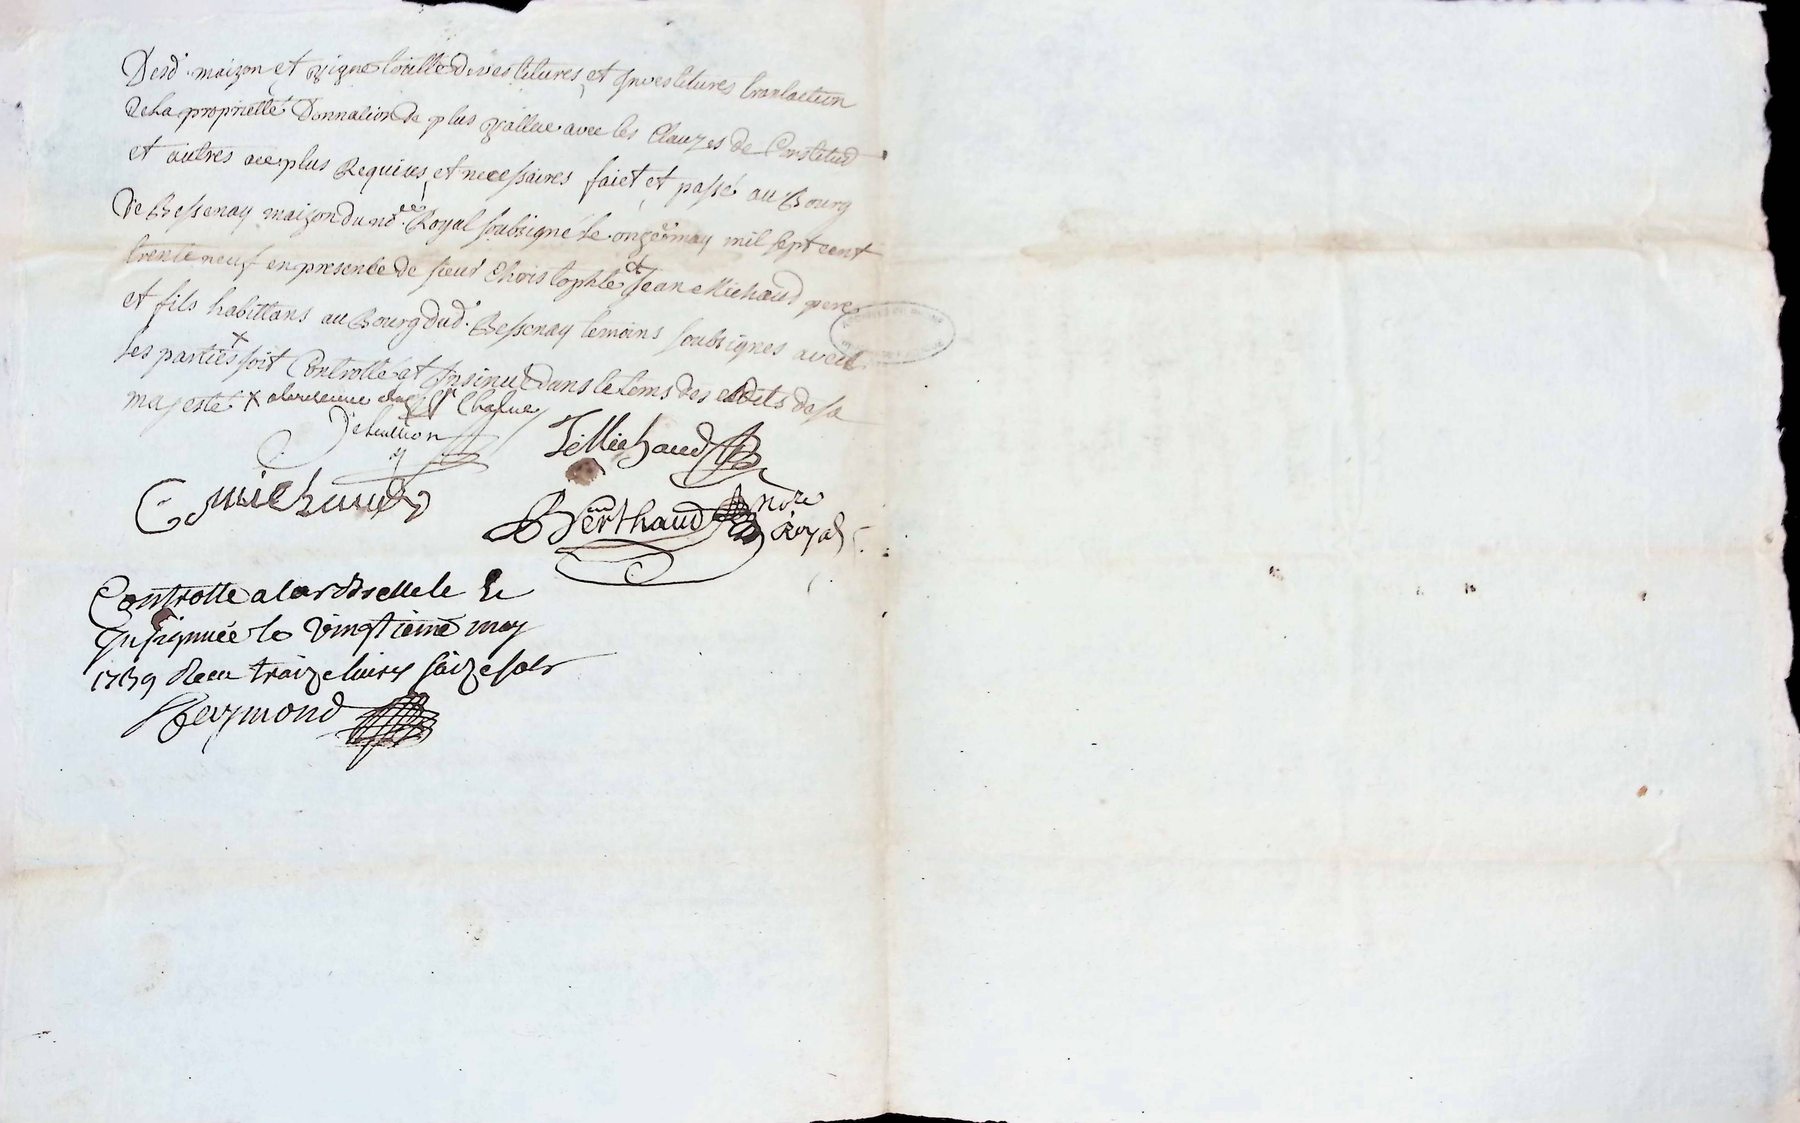 Desd. maizon et vigne touille devestitures et Investitures translation
de La proprietté Donnation de plus vallue avec les Clauzes de Constitud
et autres ace plus Requises et necessaires faict et passé au Bourg
De Bessenay maizon du nore Royal soubsigné le onzeme may mil sept cent
trente neuf en presence de sieur Christophle et Jean Michaud pere
et fils habittans au Bourg dud. Bessenay temoins soubsignes avec
les parties x soit Controllé et Insinué dans le tems des edits de sa
majesté x a la reserve Chalus
J e Michaud
C michaud
Berthaud nore
Royal
Controlle a larbrelle le &
Insignuée le vingtieme may
1739 Receu traize livres saize sols
Reymond